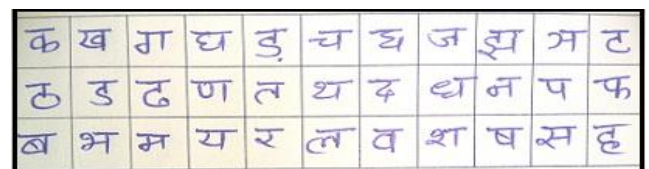 क ख ग घ ड़ च छ ज झ ञ ट
ठ ड ढ ण त थ द ध न प फ
ब भ म य र ल व श ष स ह